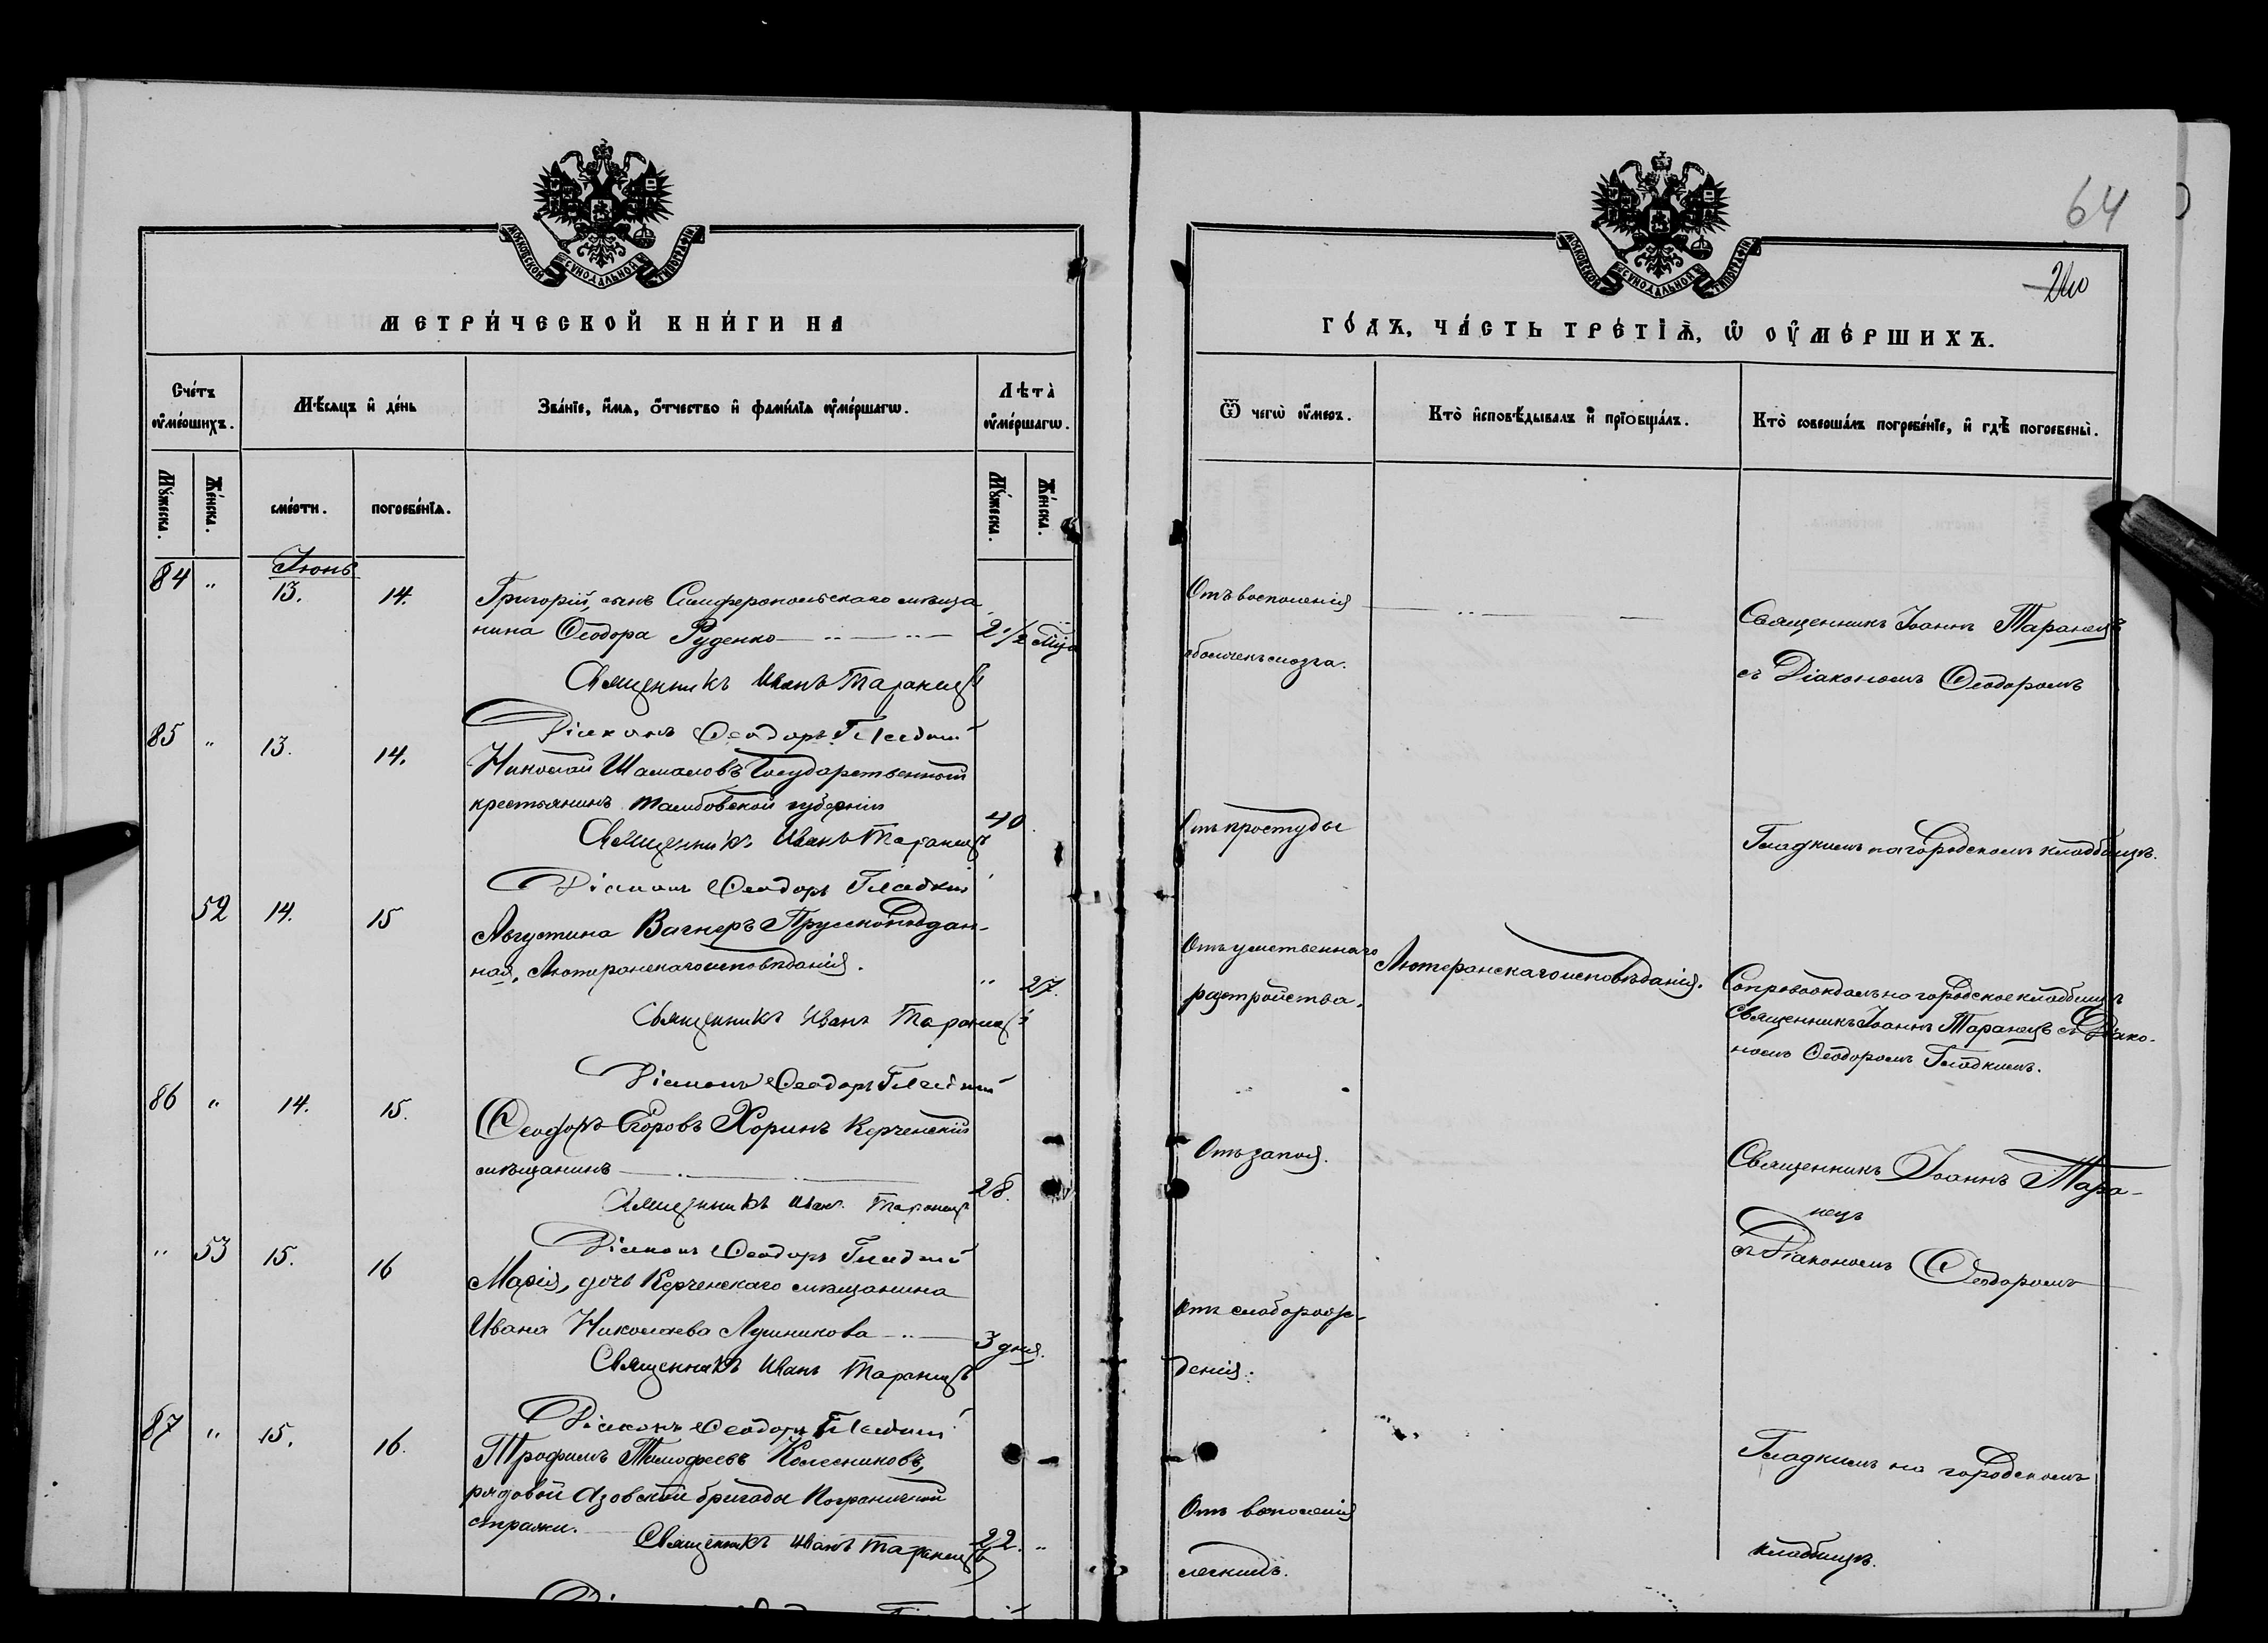 МОСКОВСКОЙ СѴНОДАЛЬНОЙ ТИПОГРАФІИ
МЕТРИ́ЧЕСКОЙ КНИ́ГИ НА
Сче́тъ оу҆ме́ршихъ.
Мѣ́сяцъ и҆ де́нь
Зва́нїе, и҆́мѧ, ѻ҆́тчество и҆ фами́лїѧ оу҆ме́ршагѡ.
Лѣ́та̀ оу҆ме́ршагѡ.
Мꙋ́жеска.
Же́нска.
сме́рти.
погребе́нїѧ.
Мꙋ́жеска.
Же́нска.
Іюнь
84 " 13. 14. Григорій, сынъ Симферопольскаго мѣща
нина Ѳеодора Руденко 2 1/2 мѣц
Священникъ Иванъ Таранецъ
Діаконъ Ѳеодоръ Гладкій
85 " 13. 14. Николай Шамаловъ Государственный
крестьянинъ Тамбовской губерніи 40
Священникъ Иванъ Таранецъ
Діаконъ Ѳеодоръ Гладкій
52 14. 15 Августина Вагнеръ Прусскоподдан-
ная, Лютеранскаго исповѣданія. " 27.
Священникъ Иванъ Таранецъ
Діаконъ Ѳеодоръ Гладкій
86 " 14. 15. Ѳеодоръ Егоровъ Хоринъ Керченскій
мѣщанинъ 28.
Священникъ Иван. Таранецъ
Діаконъ Ѳеодоръ Гладкій
" 53 15. 16 Марія, дочь Керченскаго мѣщанина
Ивана Николаева Лушникова 3 дня.
Священникъ Иванъ Таранецъ
Діаконъ Ѳеодоръ Гладкій
87 " 15. 16. Трофимъ Тимофеевъ Колесниковъ,
рядовой Азовской бригады Пограничной
стражи. 22. "
Священникъ Иванъ Таранецъ
64
МОСКОВСКОЙ СѴНОДАЛЬНОЙ ТИПОГРАФІИ
ГО́ДЪ, ЧА́СТЬ ТРЕ́ТІѦ, Ѡ҆ ОУ҆МЕ́РШИХЪ.
Ѿ чегѡ̀ оу҆́меръ.
Кто̀ и҆сповѣ́дывалъ и҆ прїобща́лъ.
Кто̀ соверша́лъ погребе́нїе, и҆ гдѣ̀ погребены̀.
Отъ воспаленія
оболочекъ мозга.
Священникъ Іоаннъ Таранецъ
съ Діакономъ Ѳеодоромъ
Отъ простуды
Гладкимъ на городскомъ кладбищѣ.
Отъ умственнаго
разстройства.
Лютеранскаго исповѣданія.
Сопровождалъ на городское кладбище
Священникъ Іоаннъ Таранецъ съ Діако-
номъ Ѳеодоромъ Гладкимъ.
Отъ запоя.
Священникъ Іоаннъ Тара-
нецъ
съ Діакономъ Ѳеодоромъ
Отъ слаборож-
денія.
Гладкимъ на городскомъ
Отъ воспаленія
легкихъ.
кладбищѣ.